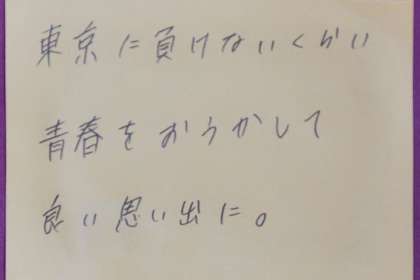 東京に負けないくらい
青春をおうかして
良い思い出に。